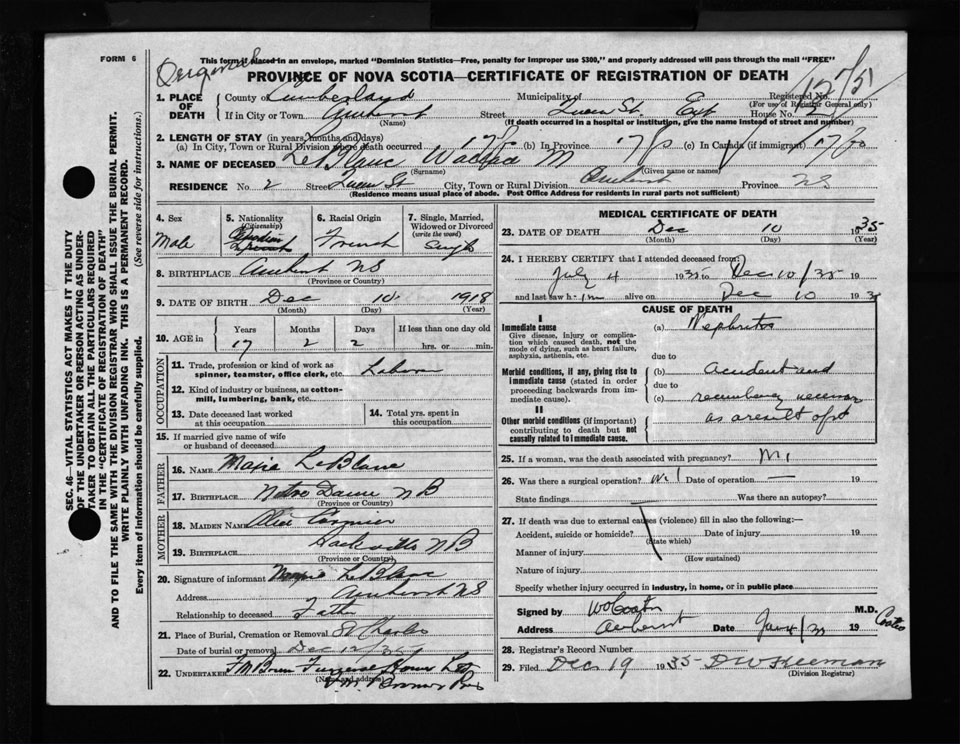 FORM 6
This form if placed in an envelope, marked "Dominion Statistics—Free, penalty for improper use $300," and properly addressed will pass through the mail "FREE"
PROVINCE OF NOVA SCOTIA—CERTIFICATE OF REGISTRATION OF DEATH
SEC. 46—VITAL STATISTICS ACT MAKES IT THE DUTY
OF THE UNDERTAKER OR PERSON ACTING AS UNDER-
TAKER TO OBTAIN ALL THE PARTICULARS REQUIRED
IN THE "CERTIFICATE OF REGISTRATION OF DEATH"
AND TO FILE THE SAME WITH THE DIVISION REGISTRAR WHO SHALL ISSUE THE BURIAL PERMIT.
WRITE PLAINLY WITH UNFADING INK. THIS IS A PERMANENT RECORD.
Every item of information should be carefully supplied. (See reverse side for instructions.)
1. PLACE OF DEATH County of Cumberland Municipality of Registered No.
(For use of Registrar General only)
If in City or Town Amherst Street House No. 2
(Name) (If death occurred in a hospital or institution, give the name instead of street and number)
2. LENGTH OF STAY (in years, months and days)
(a) In City, Town or Rural Division where death occurred (b) In Province (c) In Canada (if immigrant)
3. NAME OF DECEASED LeBlanc M
(Surname) (Given name or names)
RESIDENCE No. 2 Street City, Town or Rural Division Amherst Province NS
(Residence means usual place of abode. Post Office Address for residents in rural parts not sufficient)
4. Sex Male
5. Nationality (Citizenship)
6. Racial Origin French
7. Single, Married, Widowed or Divorced (write the word) Single
8. BIRTHPLACE Amherst NS
(Province or Country)
9. DATE OF BIRTH Dec 10 1918
(Month) (Day) (Year)
10. AGE in Years Months Days If less than one day old
17 2 2 hrs. or min.
OCCUPATION
11. Trade, profession or kind of work as spinner, teamster, office clerk, etc. Laborer
12. Kind of industry or business, as cotton-mill, lumbering, bank, etc.
13. Date deceased last worked at this occupation
14. Total yrs. spent in this occupation
15. If married give name of wife or husband of deceased
FATHER
16. NAME LeBlanc
17. BIRTHPLACE Notre Dame NB
(Province or Country)
MOTHER
18. MAIDEN NAME Cormier
19. BIRTHPLACE Sackville NB
(Province or Country)
20. Signature of informant LeBlanc
Address Amherst NS
Relationship to deceased Father
21. Place of Burial, Cremation or Removal St Charles
Date of burial or removal Dec 12/35
22. UNDERTAKER Funeral Home
(Name and address)
MEDICAL CERTIFICATE OF DEATH
23. DATE OF DEATH Dec 10 1935
(Month) (Day) (Year)
24. I HEREBY CERTIFY that I attended deceased from:
July 4 1935 to Dec 10/35 19
and last saw h im alive on Dec 10 19 35
CAUSE OF DEATH
I
Immediate cause (a) Nephritis
Give disease, injury or complication which caused death, not the mode of dying, such as heart failure, asphyxia, asthenia, etc.
due to
Morbid conditions, if any, giving rise to immediate cause (stated in order proceeding backwards from immediate cause).
(b) accident and
due to
(c)
as a result of it
II
Other morbid conditions (if important) contributing to death but not causally related to immediate cause.
25. If a woman, was the death associated with pregnancy?
26. Was there a surgical operation? Date of operation — 19
State findings Was there an autopsy?
27. If death was due to external causes (violence) fill in also the following:—
Accident, suicide or homicide? Date of injury 19
(State which)
Manner of injury
(How sustained)
Nature of injury
Specify whether injury occurred in industry, in home, or in public place
Signed by M.D.
Coates
Address Amherst Date 19
28. Registrar's Record Number
29. Filed Dec 19 1935
(Division Registrar)